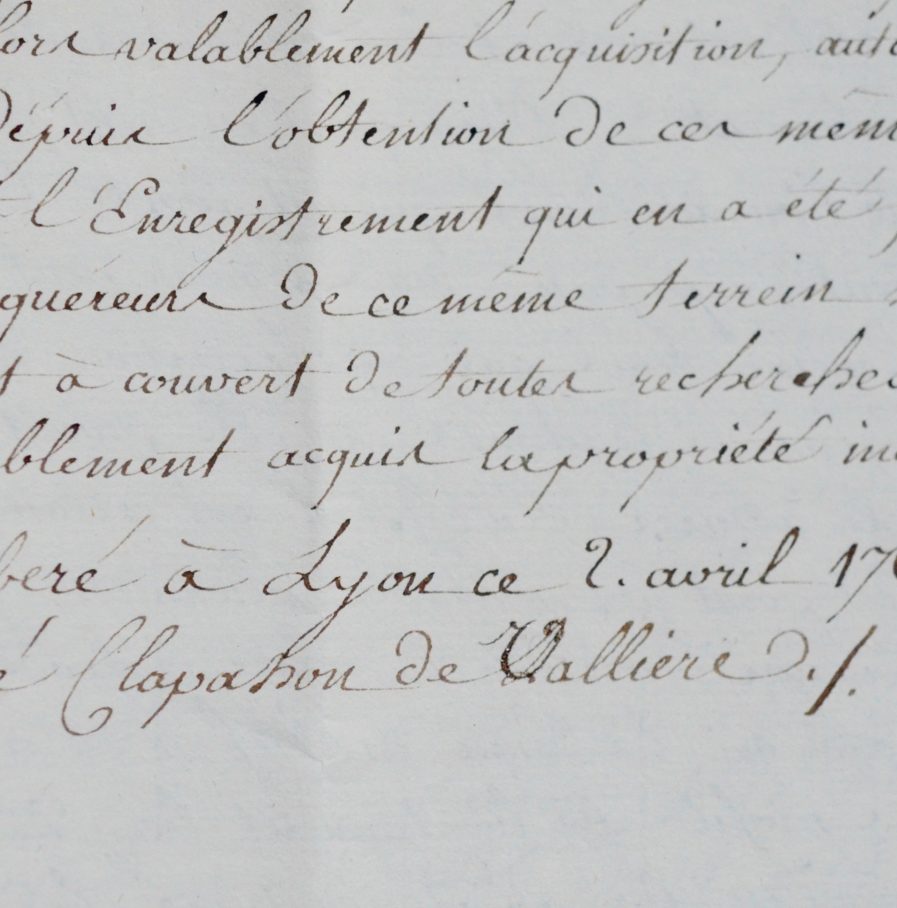 lors valablement l'acquisition, auto
Dépuis l'obtention de ces mêm
l'Enregistrement qui en a été
quéreurs de ce même terrein
t à couvert de toutes recherches
blement acquis la propriété in
beré à Lyon ce 2. avril 17
é Clapason de Vallière ./.